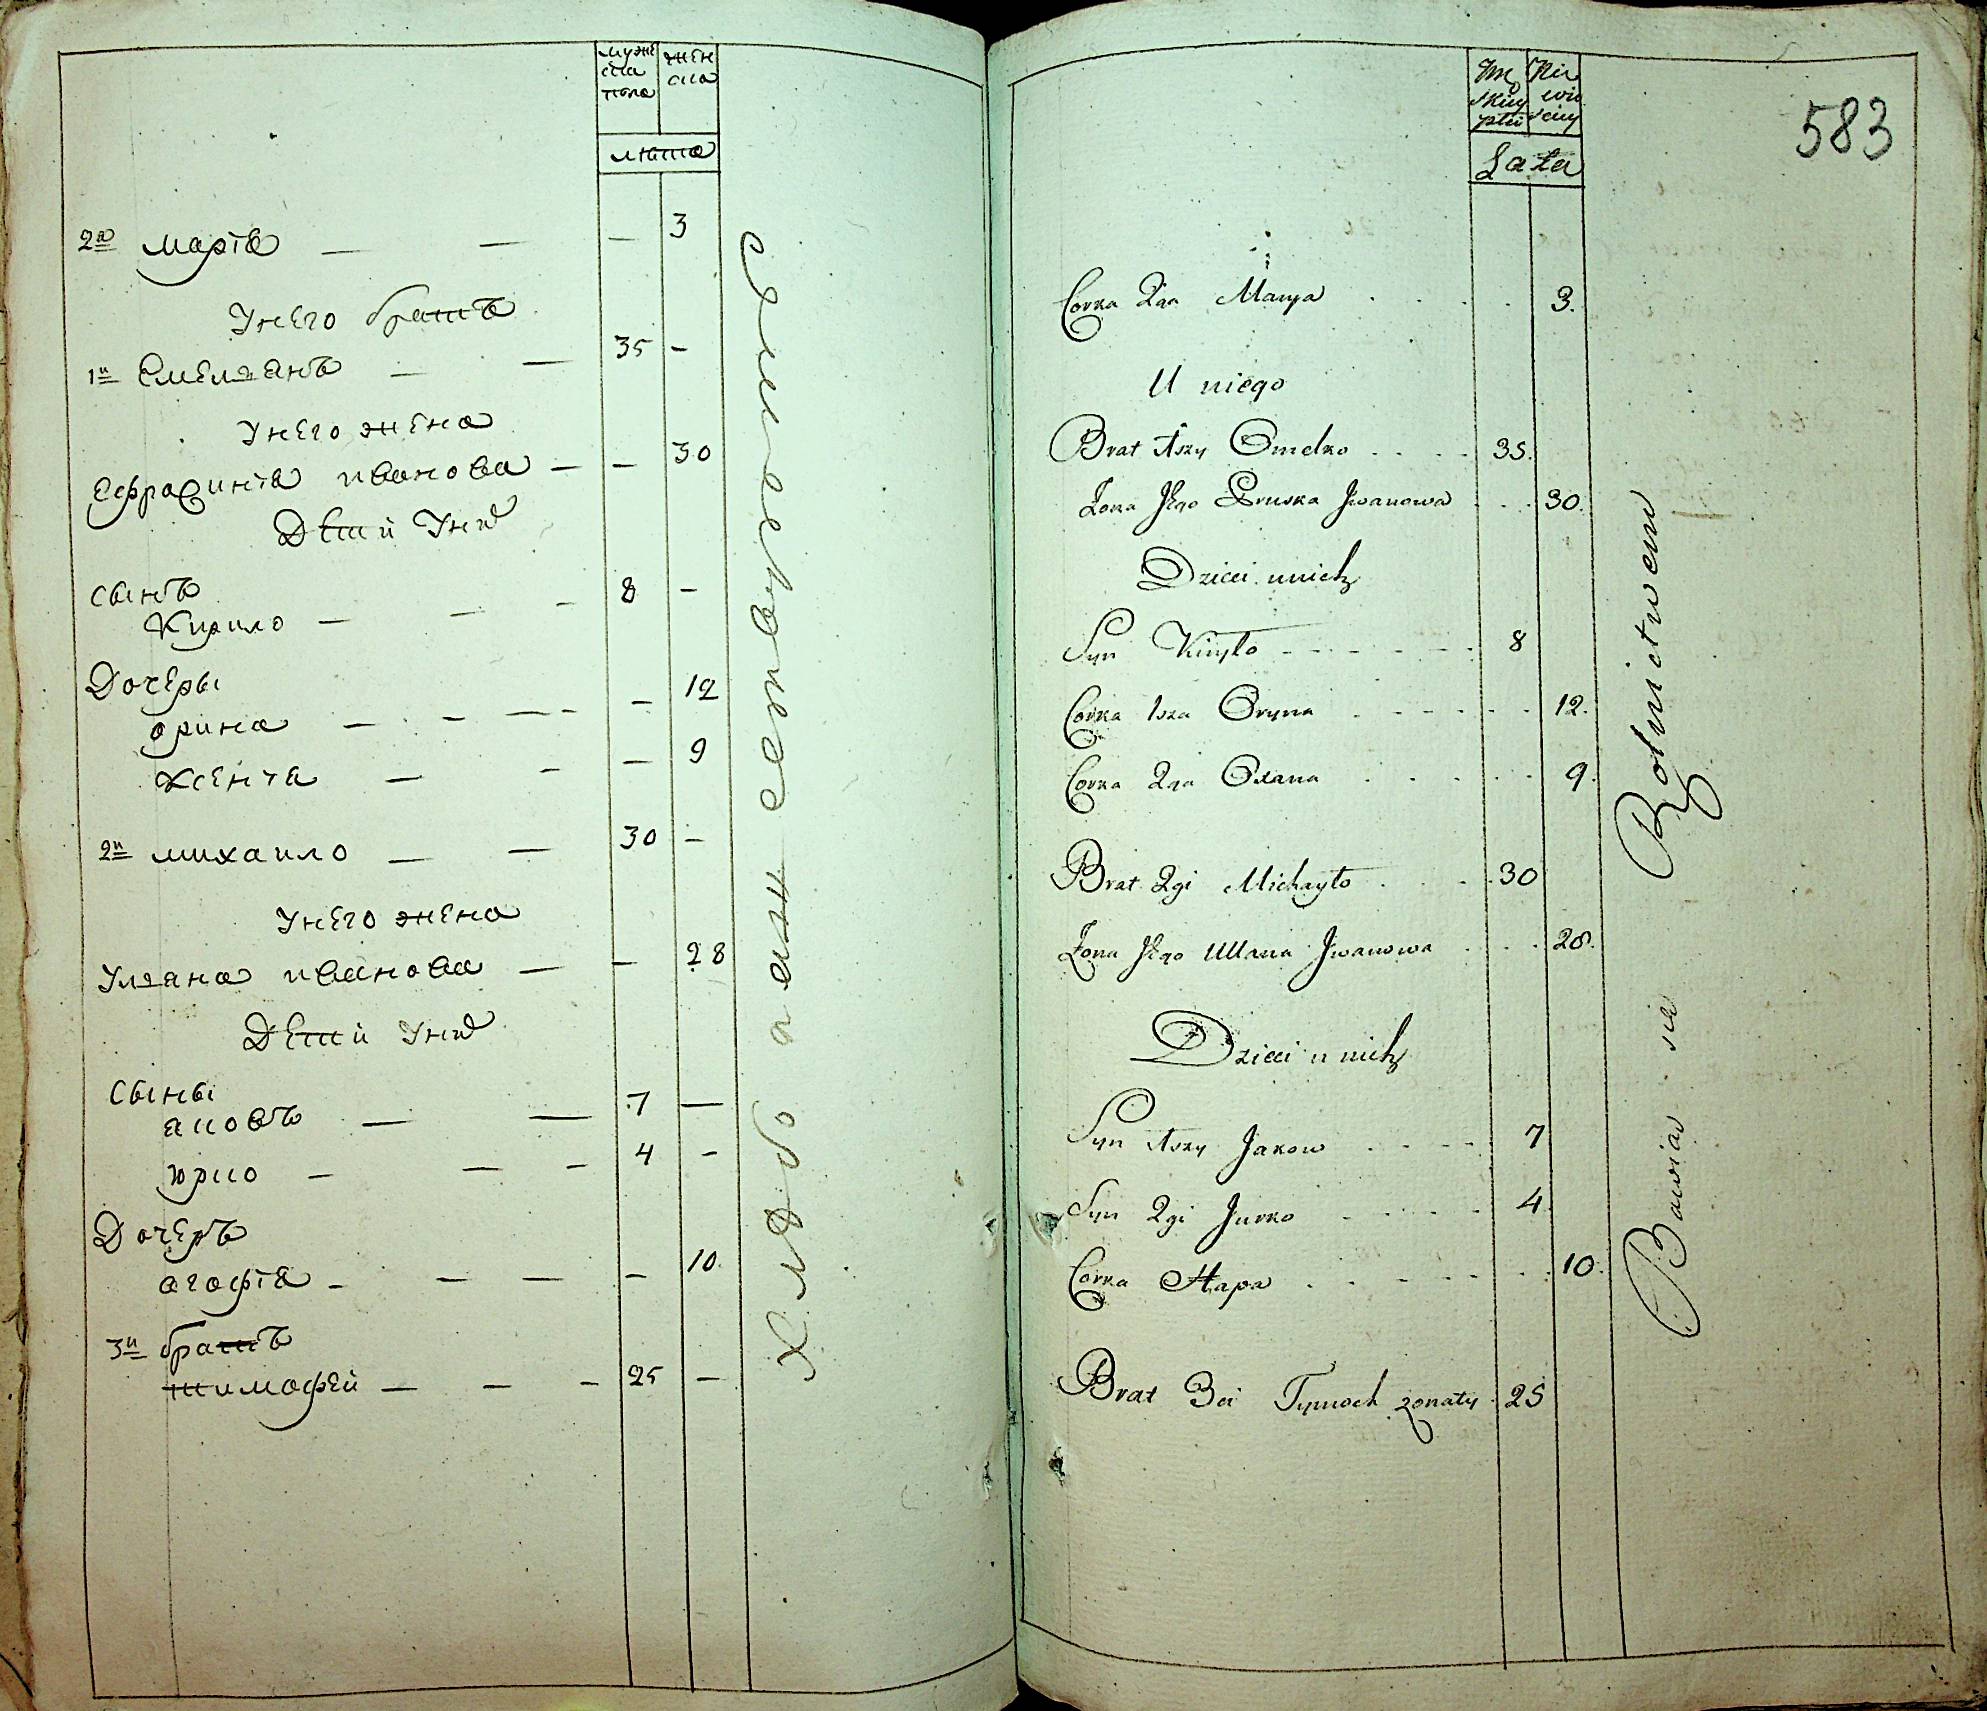 мужеска пола
женска
лѣта
2я марїя — — — 3
у него братъ
1й Емелянъ — — 35 —
у него жена
Еѳросинїя иванова — — 30
Дѣти у них
сынъ
Кирило — — — 8 —
Дочеры
орина — — — — — 12
Ксенїя — — — 9
2й михаило — — 30 —
у него жена
уляна иванова — — 28
Дѣти у них
сыны
яковъ — — 7 —
юрко — — — 4 —
Дочеръ
агафїя — — — — 10
3й братъ
тимофей — — — 25 —
583
Lata
Corka 2ga Marya . . . . 3.
U niego
Brat 1szy Omelko . . . . 35.
Żona Jego Pruska Jwanowa . . . 30.
Dzieci u nich
Syn Kiryło - - - - - - 8
Corka 1sza Oryna . - - - - . 12.
Corka 2ga Oxana . . . . . 9.
Brat 2gi Michayło . . . 30
Żona Jego Ullana Jwanowa . . . 28.
Dzieci u nich
Syn 1szy Jakow . - - - 7
Syn 2gi Jurko - - - - 4
Corka Hapa . . - - - . 10.
Brat 3ci Tymoch żonaty 25
Bawią się Rolnictwem